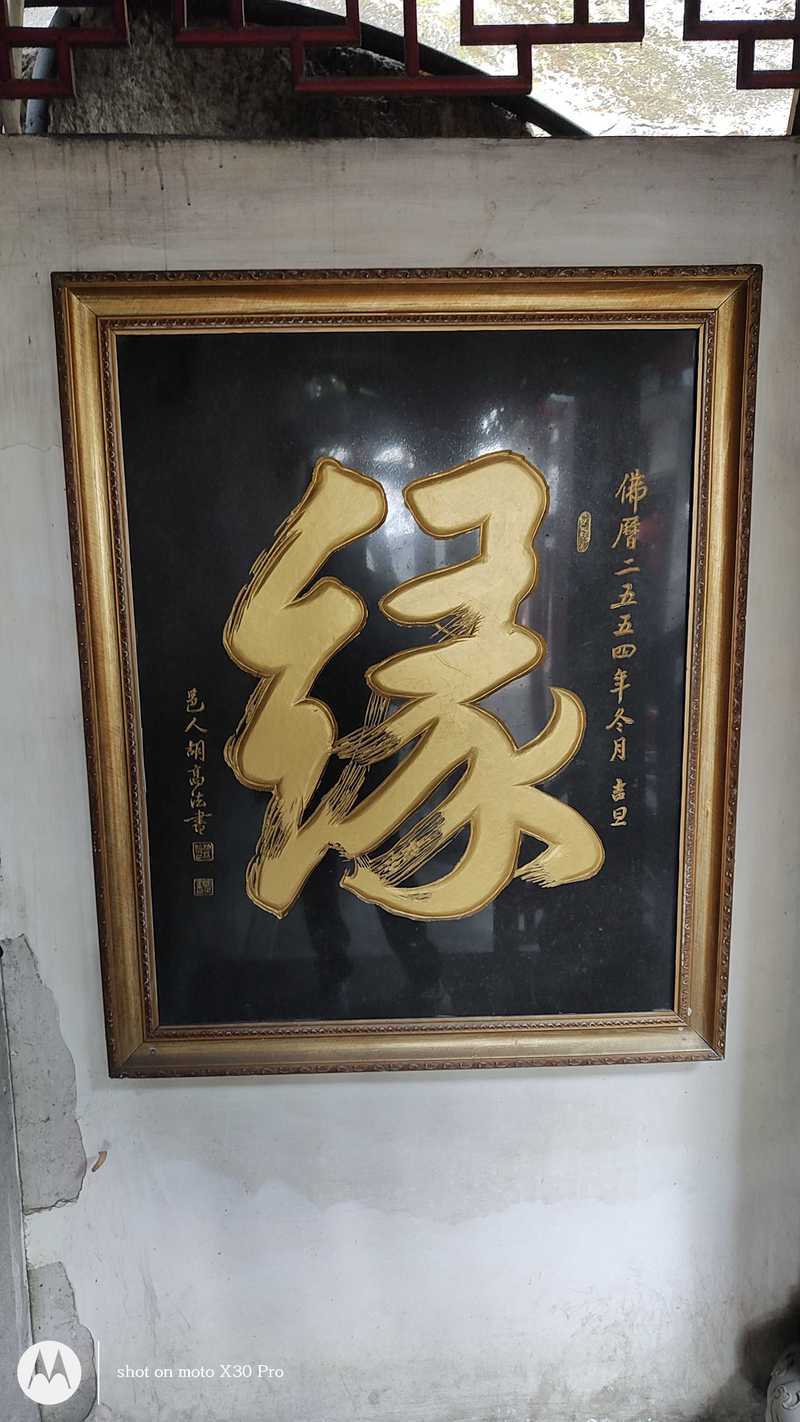 佛曆二五五四年冬月 吉旦
缘
邑人胡高法書
shot on moto X30 Pro